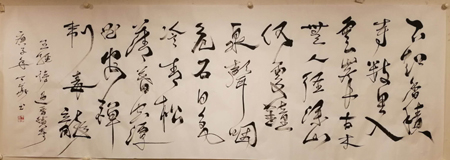 不知香積
寺數里入
雲峯古木
無人徑深山
何處鐘
泉聲咽
危石日色
冷青松
薄暮空潭
曲安禪
制毒龍
王維詩過香積寺
庚子
書